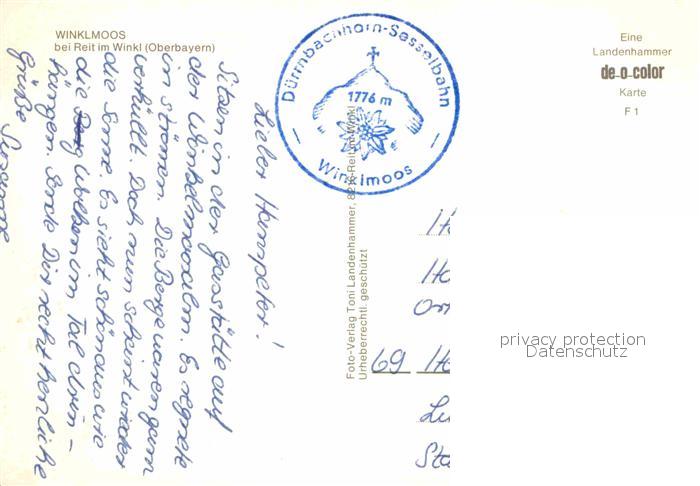 WINKLMOOS
bei Reit im Winkl (Oberbayern)
Dürrnbachhorn-Sesselbahn
1776 m
Winklmoos
Eine
Landenhammer
de-o-color
Karte
F 1
Lieber Hanspeter!
Sitzen in der Gaststätte auf
der Winkelmoosalm. Es regnete
in strömen. Die Berge waren ganz
verhüllt. Doch nun scheint wieder
die Sonne. Es sieht schön aus wie
die Wolken im Tal drin-
hängen. Sende Dir recht herzliche
Grüße
Susanne
Foto-Verlag Toni Landenhammer, Reit im Winkl
Urheberrechtl. geschützt
69
privacy protection
Datenschutz